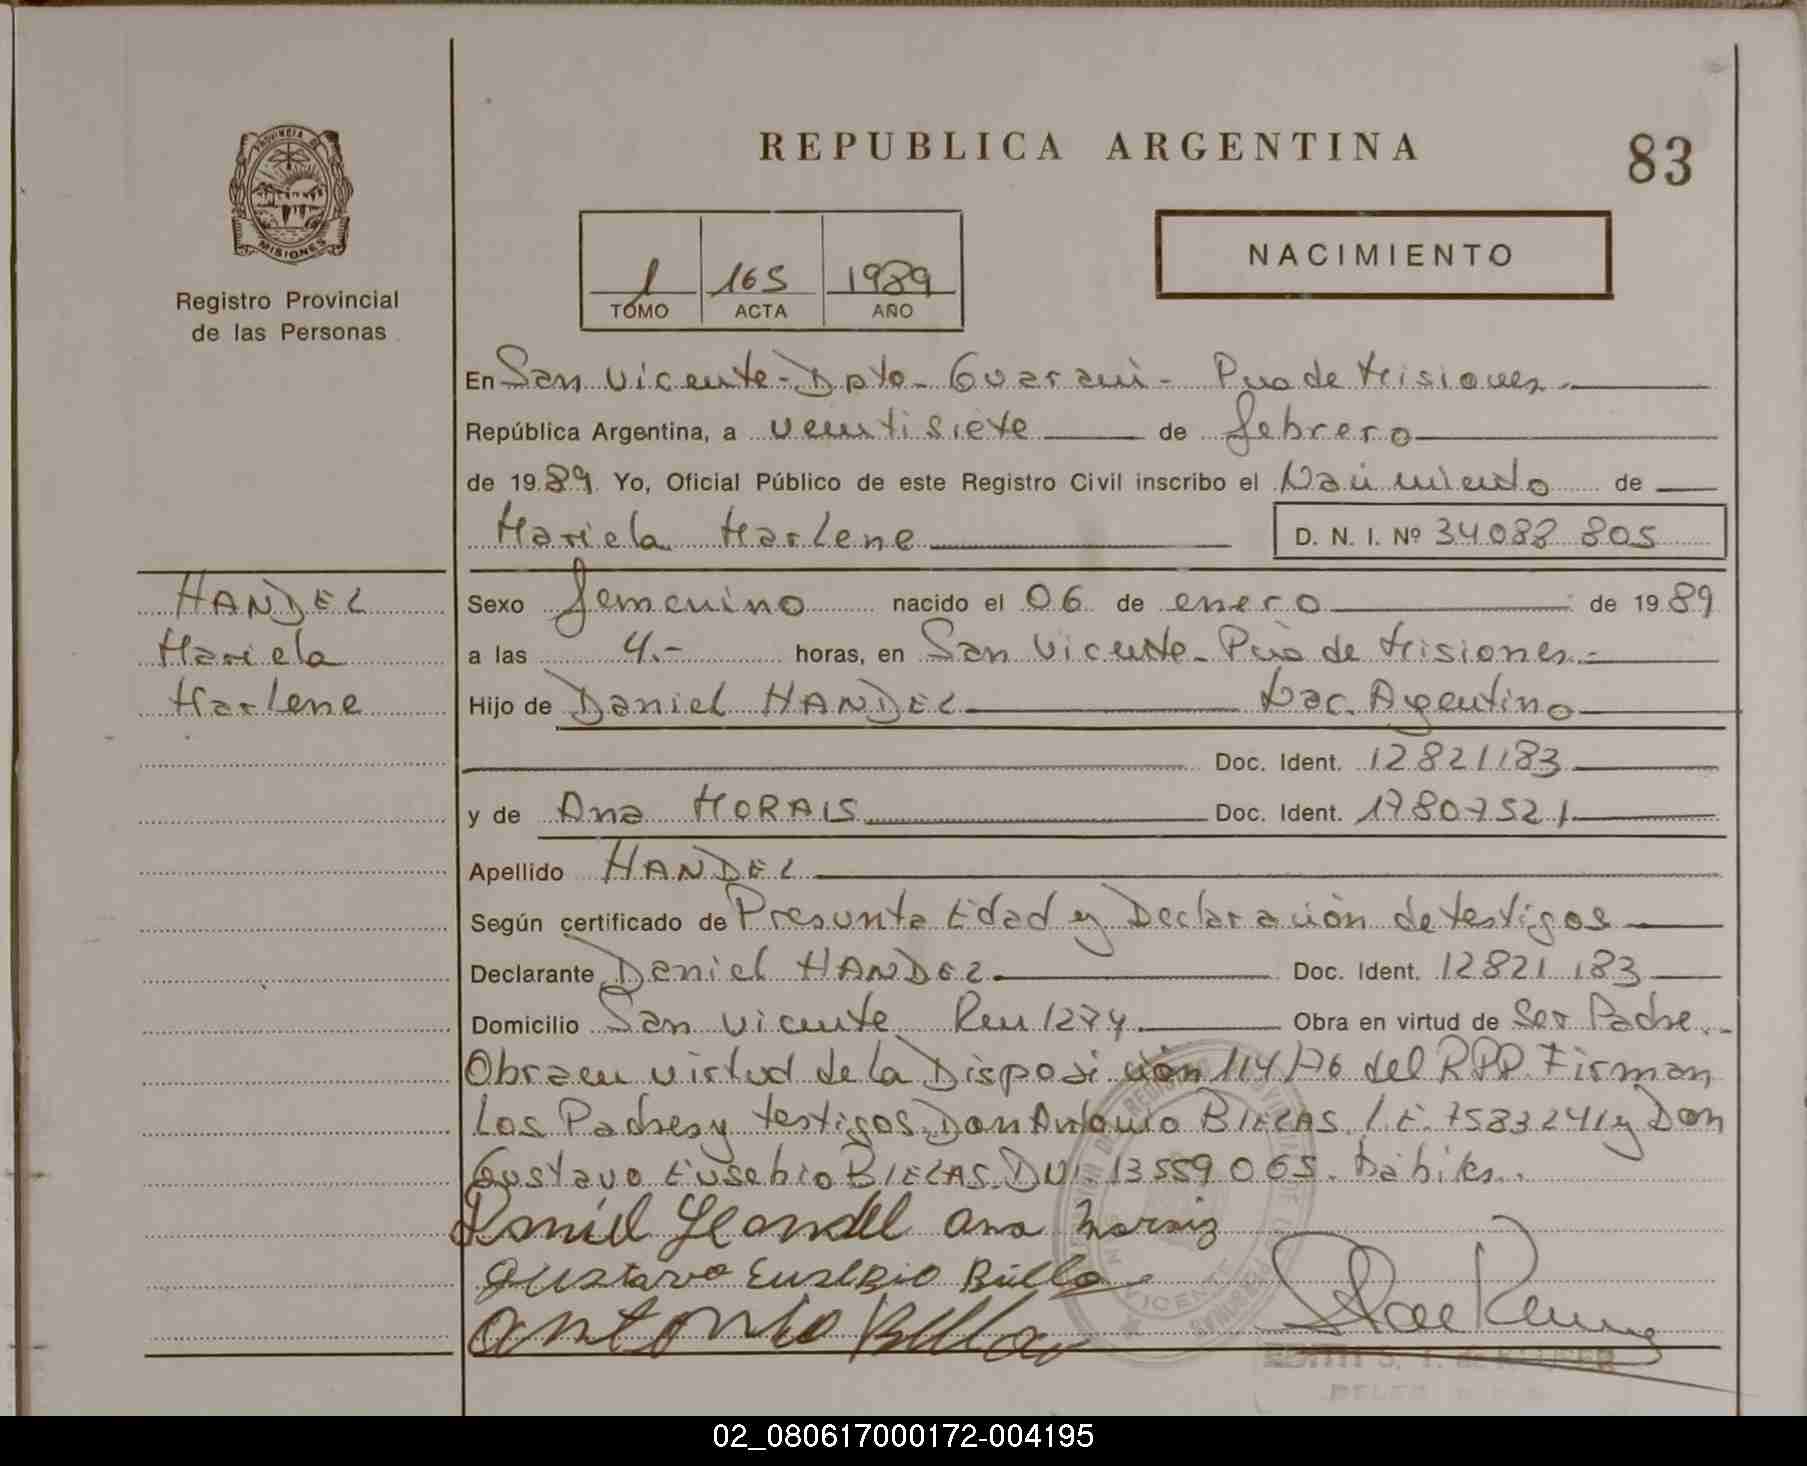 PROVINCIA DE
MISIONES
Registro Provincial
de las Personas
REPUBLICA ARGENTINA
83
1 165 1989
TOMO ACTA AÑO
NACIMIENTO
En San Vicente - Dpto - Guaraní - Pcia de Misiones
República Argentina, a veintisiete de febrero
de 1989. Yo, Oficial Público de este Registro Civil inscribo el Nacimiento de
Mariela Marlene D. N. I. Nº 34.088 805
HANDEL
Mariela
Marlene
Sexo femenino nacido el 06 de enero de 1989
a las 4.- horas, en San Vicente - Pcia de Misiones.-
Hijo de Daniel HANDEL Nac. Argentino
Doc. Ident. 12821183
y de Ana MORAIS Doc. Ident. 17807521
Apellido HANDEL
Según certificado de Presunta Edad y Declaración de testigos
Declarante Daniel HANDEL Doc. Ident. 12821183
Domicilio San Vicente Obra en virtud de Ser Padre.-
Obra en virtud de la Disposición 114/76 del RPP. Firman
Los Padres y testigos Don Antonio BIELAS L.E. 7583241 y Don
Gustavo Eusebio BIELAS. DNI. 13559065.
Daniel Handel Ana Morais
Gustavo Eusebio
Antonio
VICENTE
02_080617000172-004195